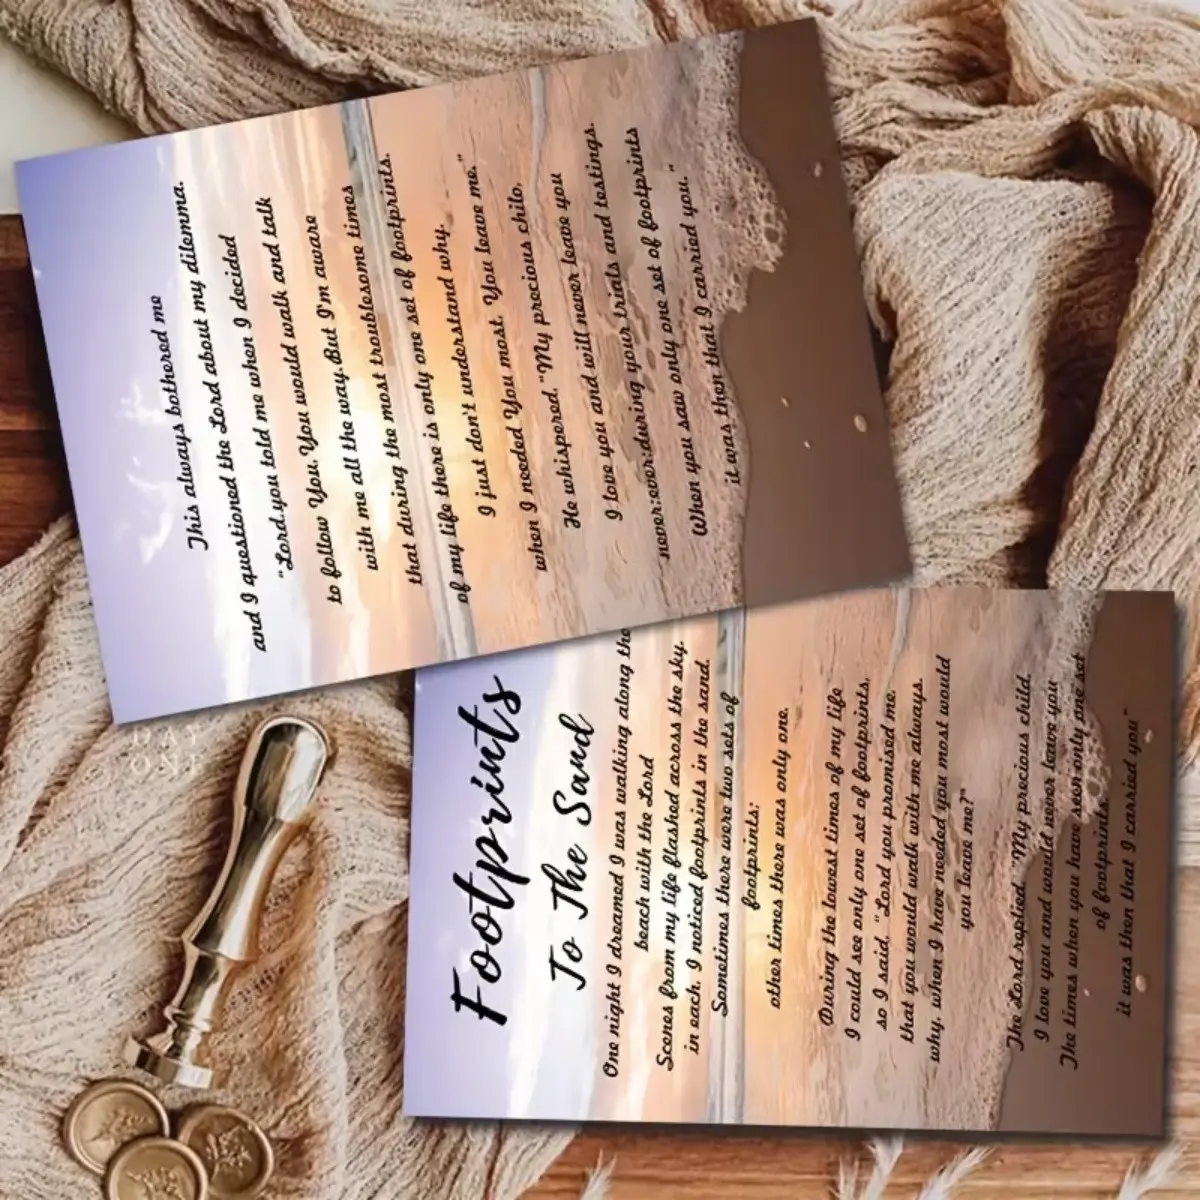 This always bothered me
and I questioned the Lord about my dilemma.
"Lord, you told me when I decided
to follow You, You would walk and talk
with me all the way. But I'm aware
that during the most troublesome times
of my life there is only one set of footprints.
I just don't understand why,
when I needed You most, You leave me."
He whispered, "My precious chilo,
I love you and will never leave you
never, ever, during your trials and testings.
When you saw only one set of footprints
it was then that I carried you."
Footprints
To The Sand
One night I dreamed I was walking along the
beach with the Lord
Scenes from my life flashed across the sky,
in each, I noticed footprints in the sand.
Sometimes there were two sets of
footprints;
other times there was only one.
During the lowest times of my life
I could see only one set of footprints,
so I said, "Lord you promised me,
that you would walk with me always.
why, when I have needed you most would
you leave me?"
The Lord replied, "My precious child,
I love you and would never leave you
The times when you have seen only one set
of footprints,
it was then that I carried you"
DAY
ONE